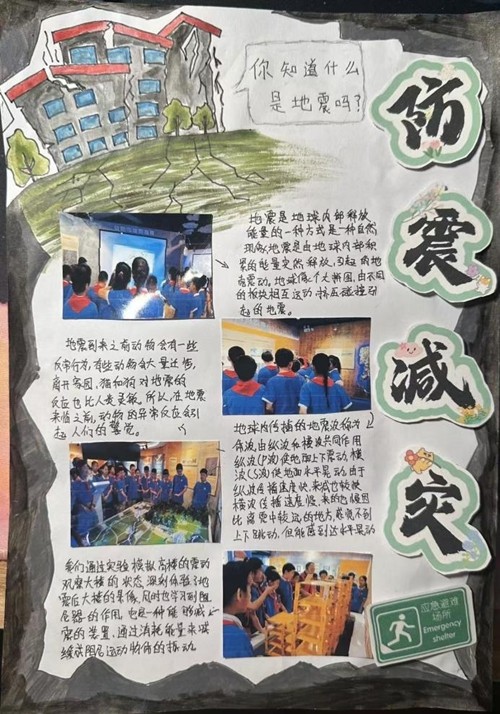 你知道什么
是地震吗?
防
震
减
灾
地震是地球内部释放
能量的一种方式是一种自然
现象地震是由地球内部积
累的能量突然释放,引起的地
壳震动。地球像个大断面,由不同
的板块相互运动、挤压碰撞引
起的地震。
地震到来之前动物会有一些
反常行为,有些动物会大量迁徙,
离开家园,猫和狗对地震的
反应也比人类灵敏。所以,在地震
来临之前,动物的异常反应会引
起人们的警觉。
地球内传播的地震波称为
体波,由纵波和横波共同作用
纵波(P波)使地面上下震动,横
波(S波)使地面水平晃动由于
纵波传播速度快,来的也较快
横波传播速度慢,来的也慢因
比离震中较远的地方,感觉不到
上下跳动,但能感到水平晃动
我们通过实验模拟高楼的震动
观摩大楼的状态,深刻体验到地
震后大楼的晃像,同时也学习到阻
尼器的作用,也是一种能够减
震的装置,通过消耗能量来
运动物体的振动
应急避难
场所
Emergency
shelter